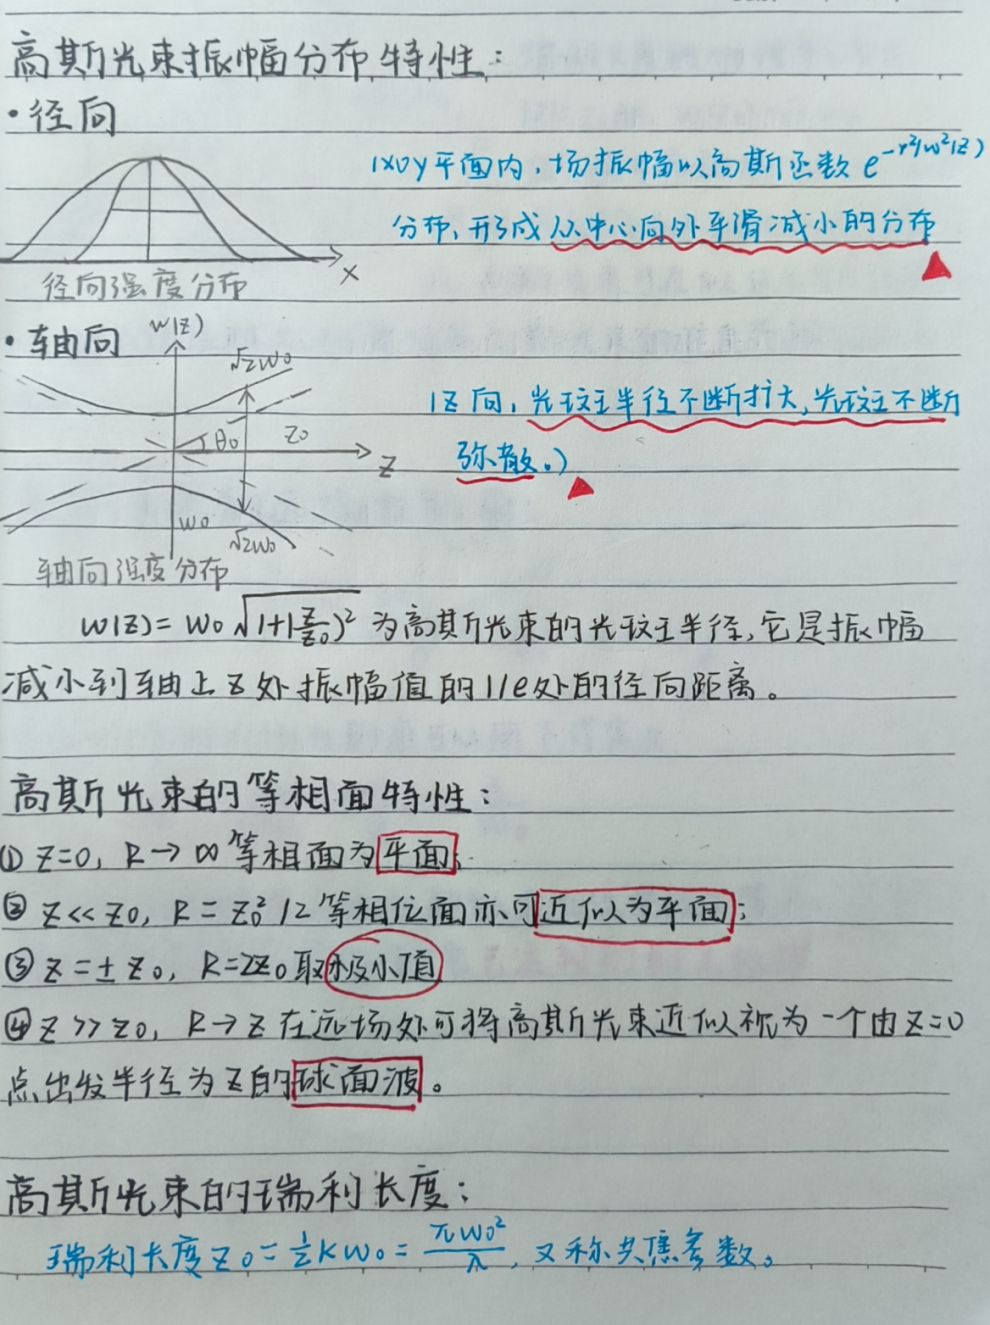 高斯光束振幅分布特性：
·径向
(xoy平面内，场振幅以高斯函数 e^{-r²/w²(z)}
分布，形成从中心向外平滑减小的分布
x
径向强度分布
·轴向
w(z)
√2w0
(z向，光斑半径不断扩大，光斑不断
弥散。)
θ0
z0
z
w0
√2w0
轴向强度分布
w(z)= w0 √(1+(z/z0)²) 为高斯光束的光斑半径，它是振幅
减小到轴上z处振幅值的1/e处的径向距离。
高斯光束的等相面特性：
① z=0，R→∞ 等相面为平面；
② z<<z0，R=z0²/z 等相位面亦可近似为平面；
③ z=±z0，R=2z0取极小值
④ z>>z0，R→z 在远场处可将高斯光束近似视为一个由z=0
点出发半径为z的球面波。
高斯光束的瑞利长度：
瑞利长度z0=½kw0=πw0²/λ，又称共焦参数。